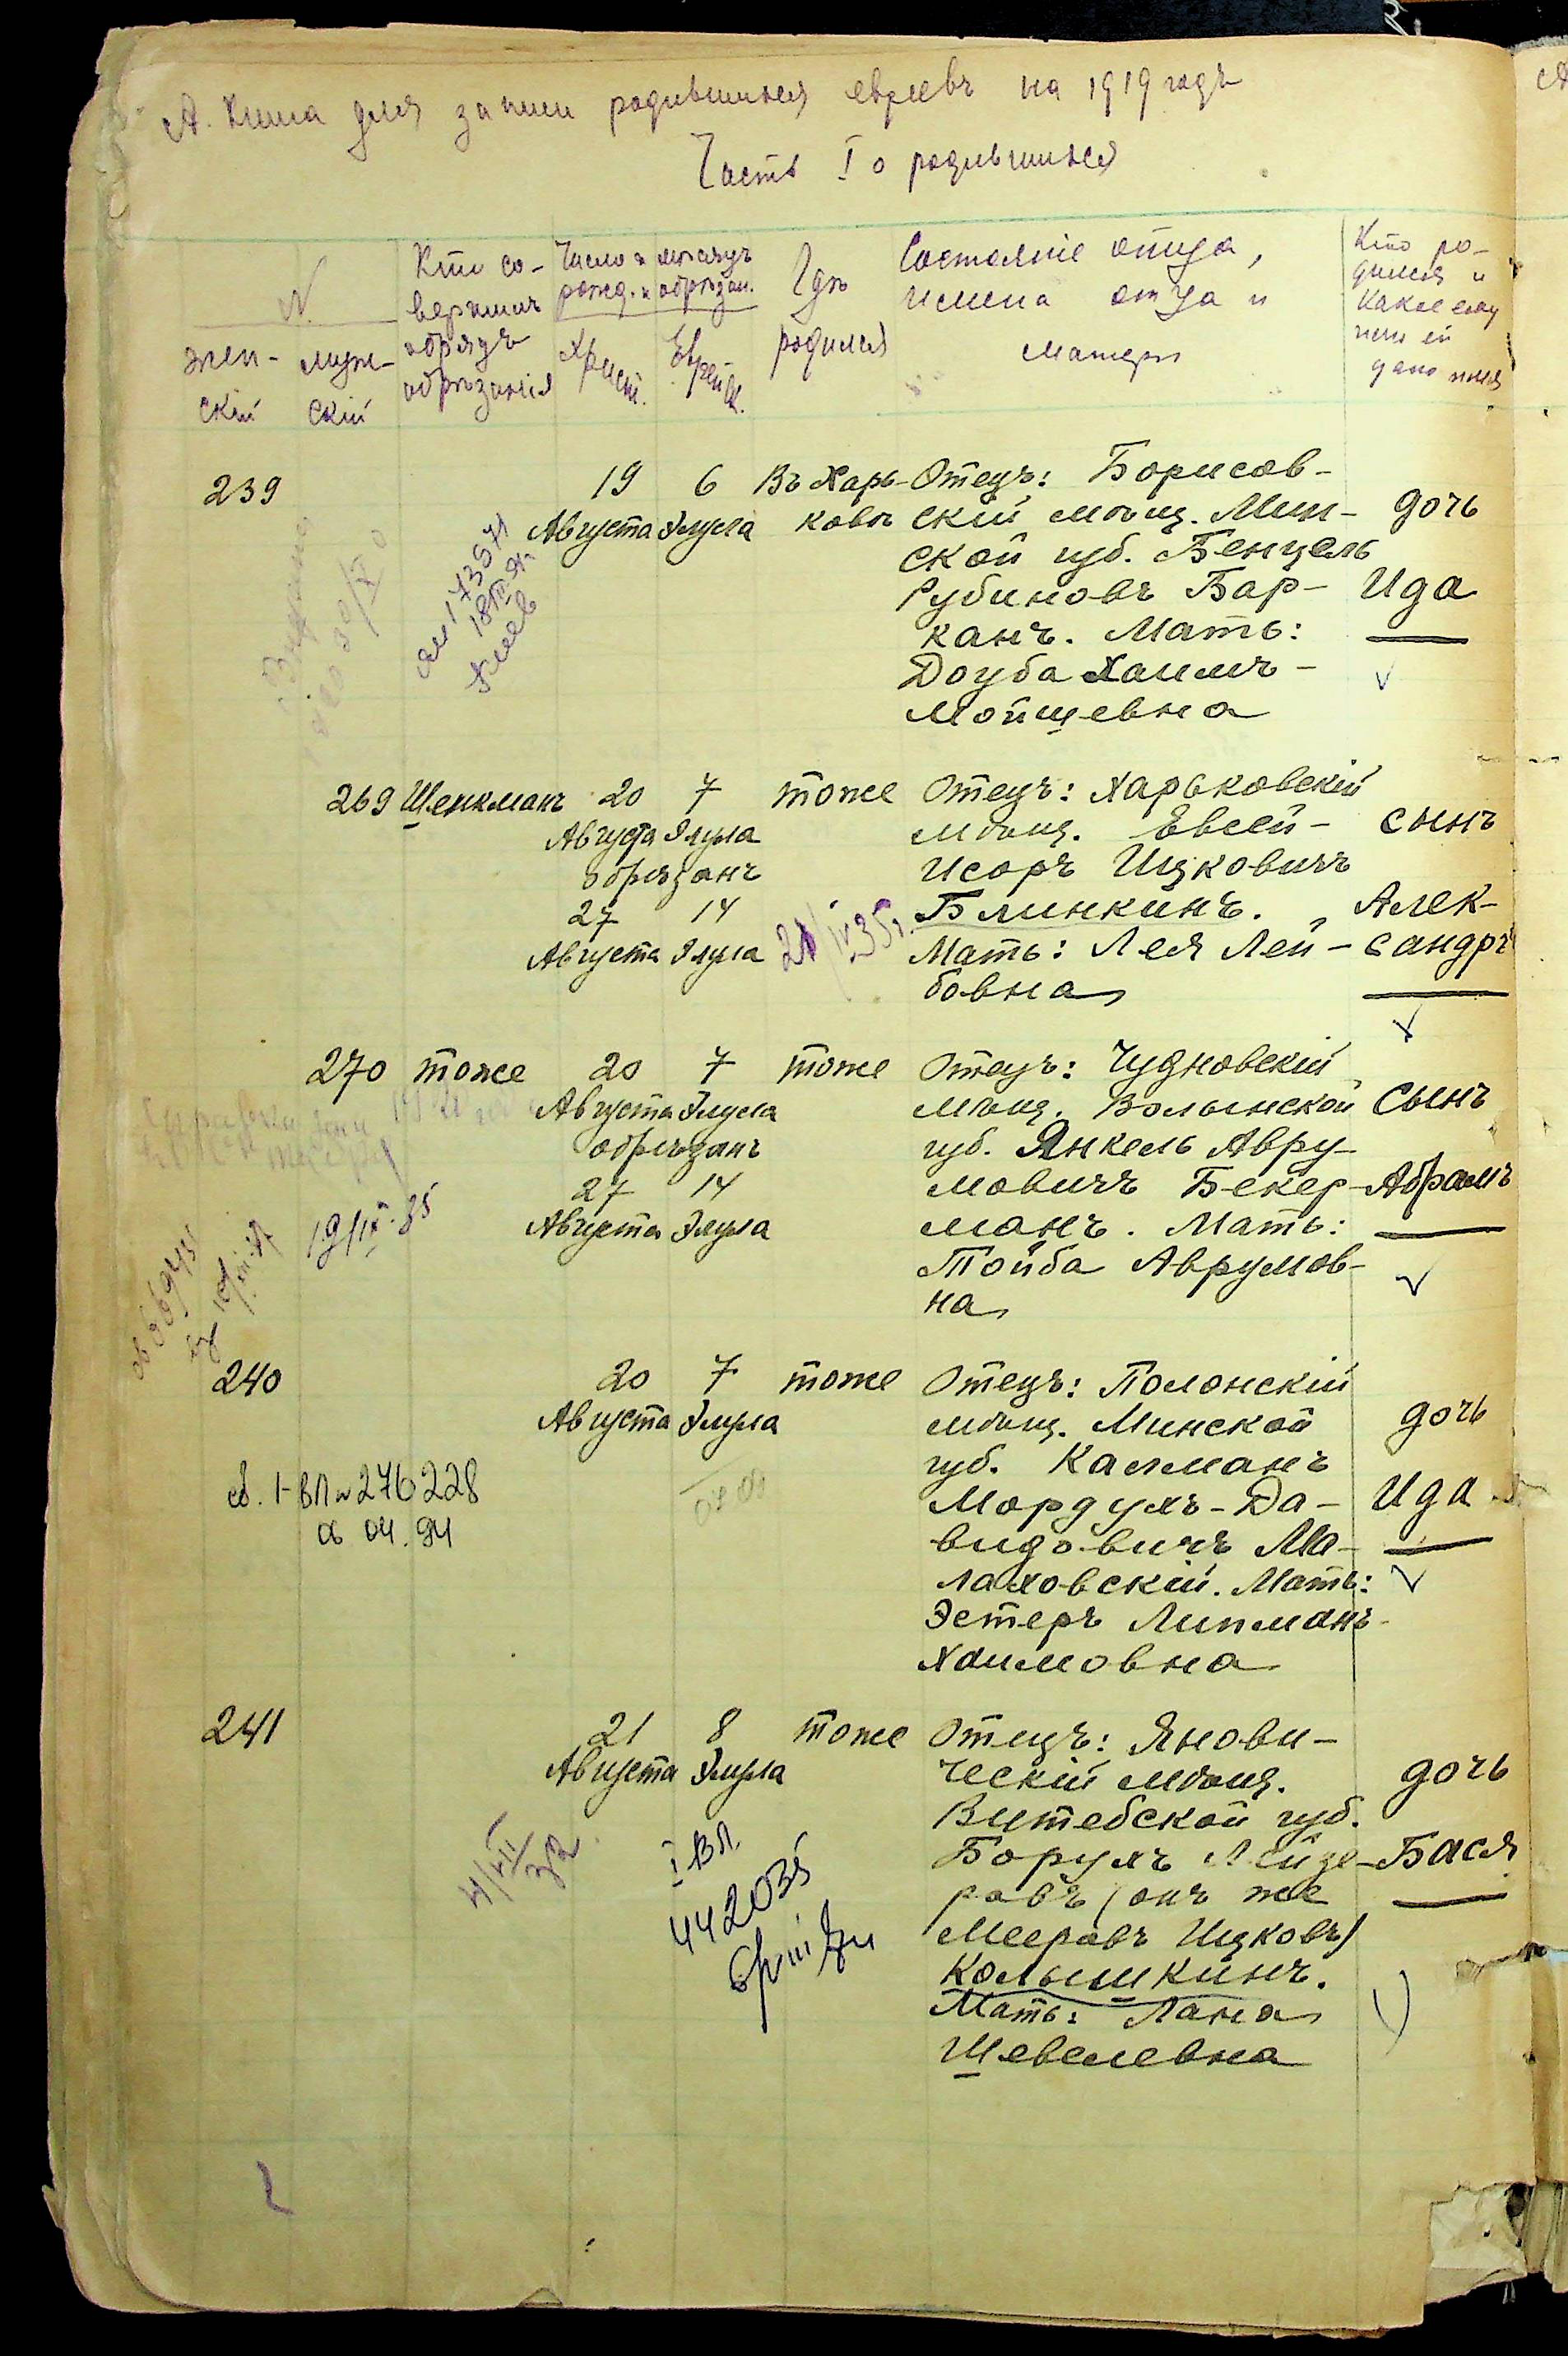 А. Книга для записи родившихся евреевъ на 1919 годъ
Часть I о родившихся
№
жен-
скій
муж-
скій
Кто со-
вершилъ
обрядъ
обрѣзанія
Число и мѣсяцъ
рожд. и обрѣзан.
Христ.
Еврейск.
Гдѣ
родился
Состояніе отца,
имена отца и
матери
Кто ро-
дился и
какое ему
или ей
дано имя
239
19 6
Августа Элула
Въ Харь-
ковѣ
Отецъ: Борисов-
скій мѣщ. Мин-
ской губ. Бенцель
Рубиновъ Бар-
канъ. Мать:
Доуба Хаимъ-
Мойшевна
дочь
Ида
269 Шенкманъ
20 7
Августа Элула
обрѣзанъ
27 14
Августа Элула
тоже
Отецъ: Харьковскій
мѣщ. Евсей-
Исоръ Ицковичъ
Блинкинъ.
Мать: Лея Лей-
бовна
сынъ
Алек-
сандръ
270 тоже
20 7
Августа Элула
обрѣзанъ
27 14
Августа Элула
тоже
Отецъ: Чудновскій
мѣщ. Волынской
губ. Янкель Авру-
мовичъ Бекер-
манъ. Мать:
Тойба Аврумов-
на
сынъ
Абрамъ
19/IX.35
240
20 7
Августа Элула
тоже
Отецъ: Полонскій
мѣщ. Минской
губ. Калманъ
Мордухъ-Да-
видовичъ Ма-
лаховскій. Мать:
Эстеръ Липманъ-
Хаимовна
дочь
Ида
св. I-ВЛ № 276228
06 04.94
241
21 8
Августа Элула
тоже
Отецъ: Янови-
ческій мѣщ.
Витебской губ.
Борухъ Лейзе-
ровъ (онъ же
Мееровъ Ицковъ)
Колышкинъ.
Мать: Лана
Шевелевна
дочь
Бася
4/VII
32
I ВЛ
442035